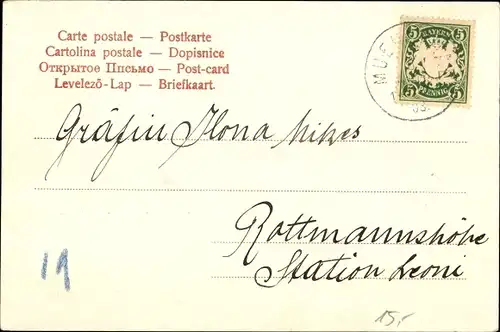 Carte postale — Postkarte
Cartolina postale — Dopisnice
Открытое Письмо — Post-card
Levelező-Lap — Briefkaart.
5 BAYERN 5
5 PFENNIG 5
Gräfin Ilona
Rottmannshöhe
Station Leoni
15,-